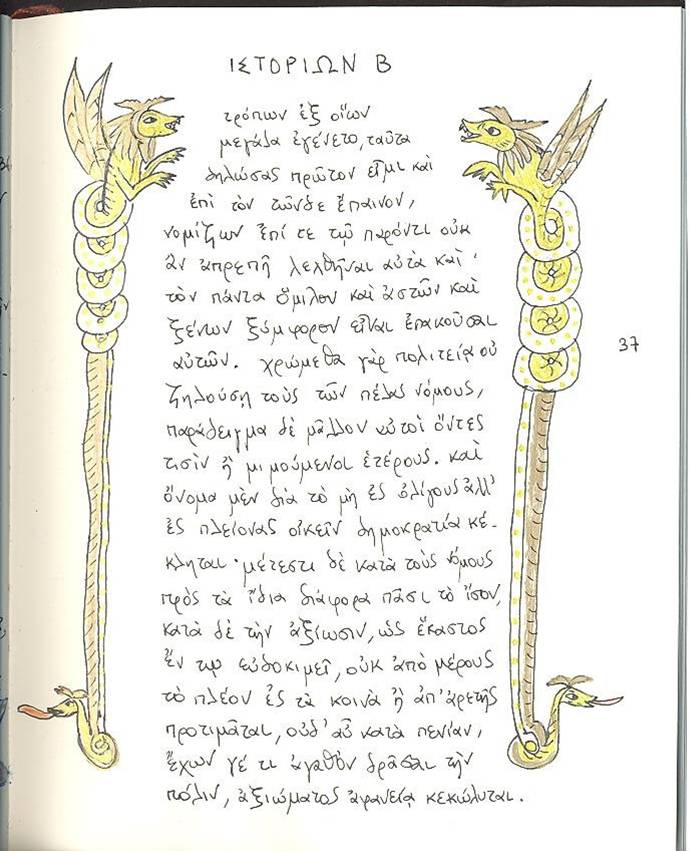 ΙΣΤΟΡΙΩΝ Β
τρόπων ἐξ οἵων
μεγάλα ἐγένετο, ταῦτα
δηλώσας πρῶτον εἶμι καὶ
ἐπὶ τὸν τῶνδε ἔπαινον,
νομίζων ἐπί τε τῷ παρόντι οὐκ
ἂν ἀπρεπῆ λελθῆναι αὐτὰ καὶ
τὸν πάντα ὅμιλον καὶ ἀστῶν καὶ
ξένων ξύμφορον εἶναι ἐπακοῦσαι
αὐτῶν. χρώμεθα γὰρ πολιτείᾳ οὐ
ζηλούσῃ τοὺς τῶν πέλας νόμους,
παράδειγμα δὲ μᾶλλον αὐτοὶ ὄντες
τισὶν ἢ μιμούμενοι ἑτέρους. καὶ
ὄνομα μὲν διὰ τὸ μὴ ἐς ὀλίγους ἀλλ'
ἐς πλείονας οἰκεῖν δημοκρατία κέ-
κληται· μέτεστι δὲ κατὰ τοὺς νόμους
πρὸς τὰ ἴδια διάφορα πᾶσι τὸ ἴσον,
κατὰ δὲ τὴν ἀξίωσιν, ὡς ἕκαστος
ἔν τῳ εὐδοκιμεῖ, οὐκ ἀπὸ μέρους
τὸ πλέον ἐς τὰ κοινὰ ἢ ἀπ' ἀρετῆς
προτιμᾶται, οὐδ' αὖ κατὰ πενίαν,
ἔχων γέ τι ἀγαθὸν δρᾶσαι τὴν
πόλιν, ἀξιώματος ἀφανείᾳ κεκώλυται.
37